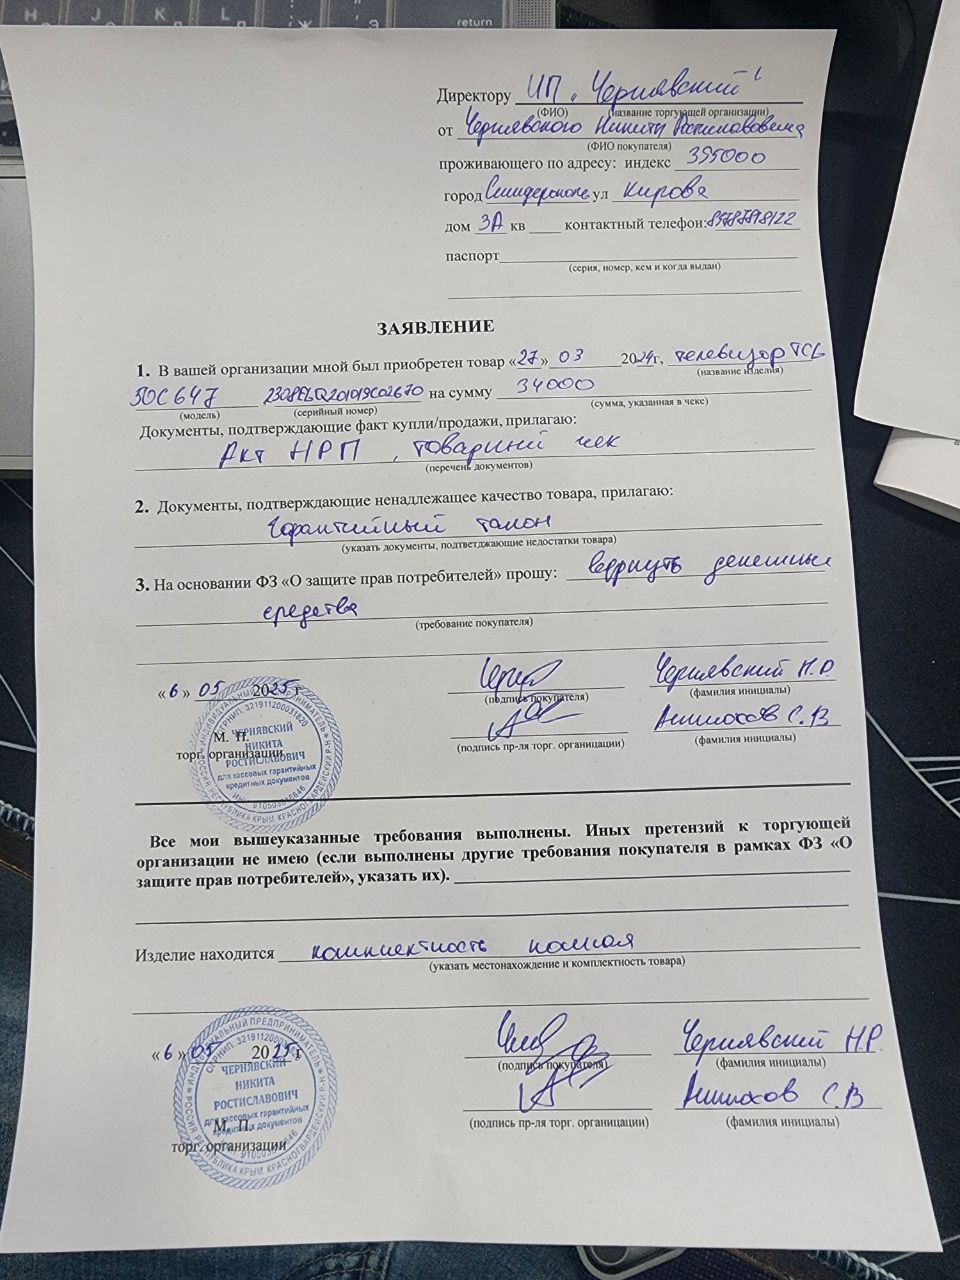 return
Директору ИП "Чернявский"
(ФИО) (название торгующей организации)
от Чернявского Никиты Ростиславовича
(ФИО покупателя)
проживающего по адресу: индекс 395000
город Симферополь ул Кирова
дом 3А кв ____ контактный телефон:
паспорт
(серия, номер, кем и когда выдан)
ЗАЯВЛЕНИЕ
1. В вашей организации мной был приобретен товар «27» 03 2024г, телевизор TCL
(название изделия)
50C647 на сумму 34000
(модель) (серийный номер) (сумма, указанная в чеке)
Документы, подтверждающие факт купли/продажи, прилагаю:
Акт НРП, товарный чек
(перечень документов)
2. Документы, подтверждающие ненадлежащее качество товара, прилагаю:
Гарантийный талон
(указать документы, подтветджающие недостатки товара)
3. На основании ФЗ «О защите прав потребителей» прошу: вернуть денежные
средства
(требование покупателя)
«6» 05 2025 г Чернявский Н.Р
(подпись покупателя) (фамилия инициалы)
М. П. С.В
торг. организации (подпись пр-ля торг. органицации) (фамилия инициалы)
ИНДИВИДУАЛЬНЫЙ ПРЕДПРИНИМАТЕЛЬ
ЧЕРНЯВСКИЙ
НИКИТА
РОСТИСЛАВОВИЧ
для кассовых гарантийных
кредитных документов
РОССИЯ РЕСПУБЛИКА КРЫМ КРАСНОГВАРДЕЙСКИЙ Р-Н
Все мои вышеуказанные требования выполнены. Иных претензий к торгующей
организации не имею (если выполнены другие требования покупателя в рамках ФЗ «О
защите прав потребителей», указать их).
Изделие находится комплектность полная
(указать местонахождение и комплектность товара)
«6» 05 2025 г Чернявский Н.Р.
(подпись покупателя) (фамилия инициалы)
М. П. С.В
торг. организации (подпись пр-ля торг. органицации) (фамилия инициалы)
ИНДИВИДУАЛЬНЫЙ ПРЕДПРИНИМАТЕЛЬ
ЧЕРНЯВСКИЙ
НИКИТА
РОСТИСЛАВОВИЧ
для кассовых гарантийных
кредитных документов
РОССИЯ РЕСПУБЛИКА КРЫМ КРАСНОГВАРДЕЙСКИЙ Р-Н